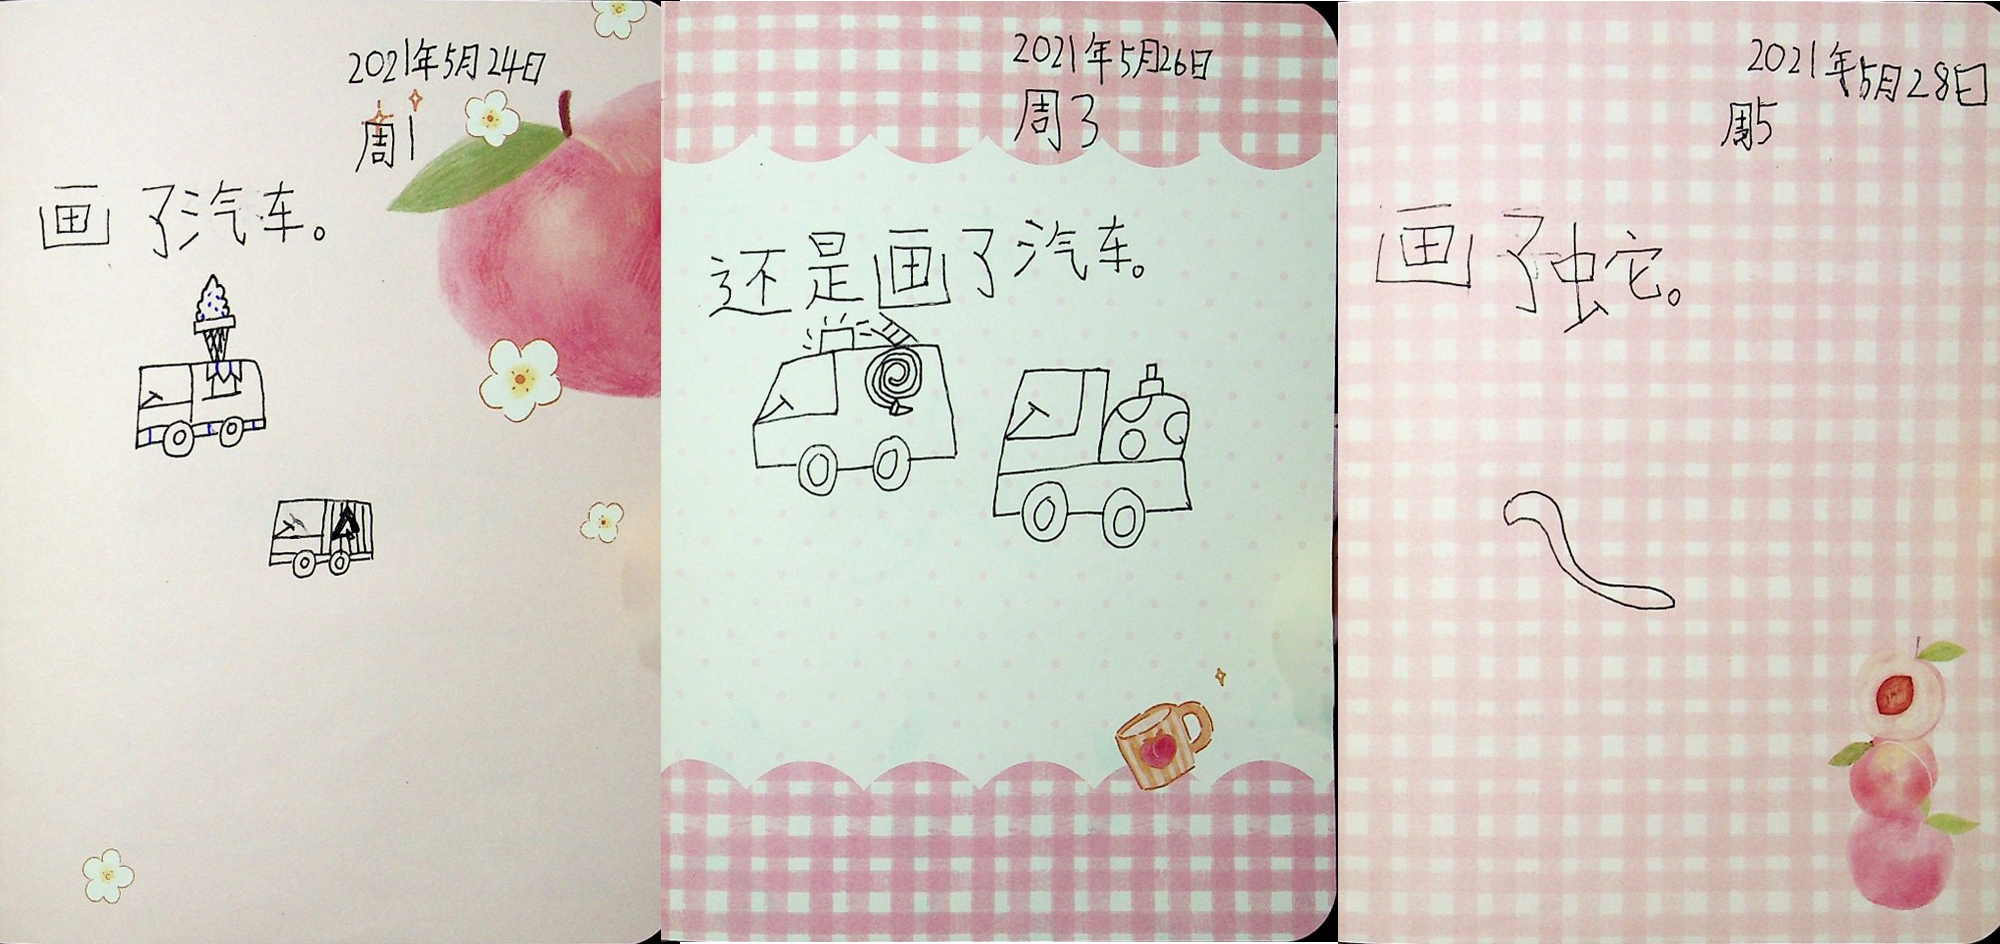 2021年5月24日
周1
画了汽车。
2021年5月26日
周3
还是画了汽车。
2021年5月28日
周5
画了蛇。